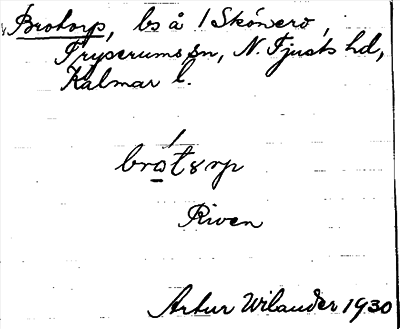 Brotorp, bs å /Skönero,
Tryserums sn, N. Tjusts hd,
Kalmar l.
bro´tørp
Riven
Artur Wilander 1930